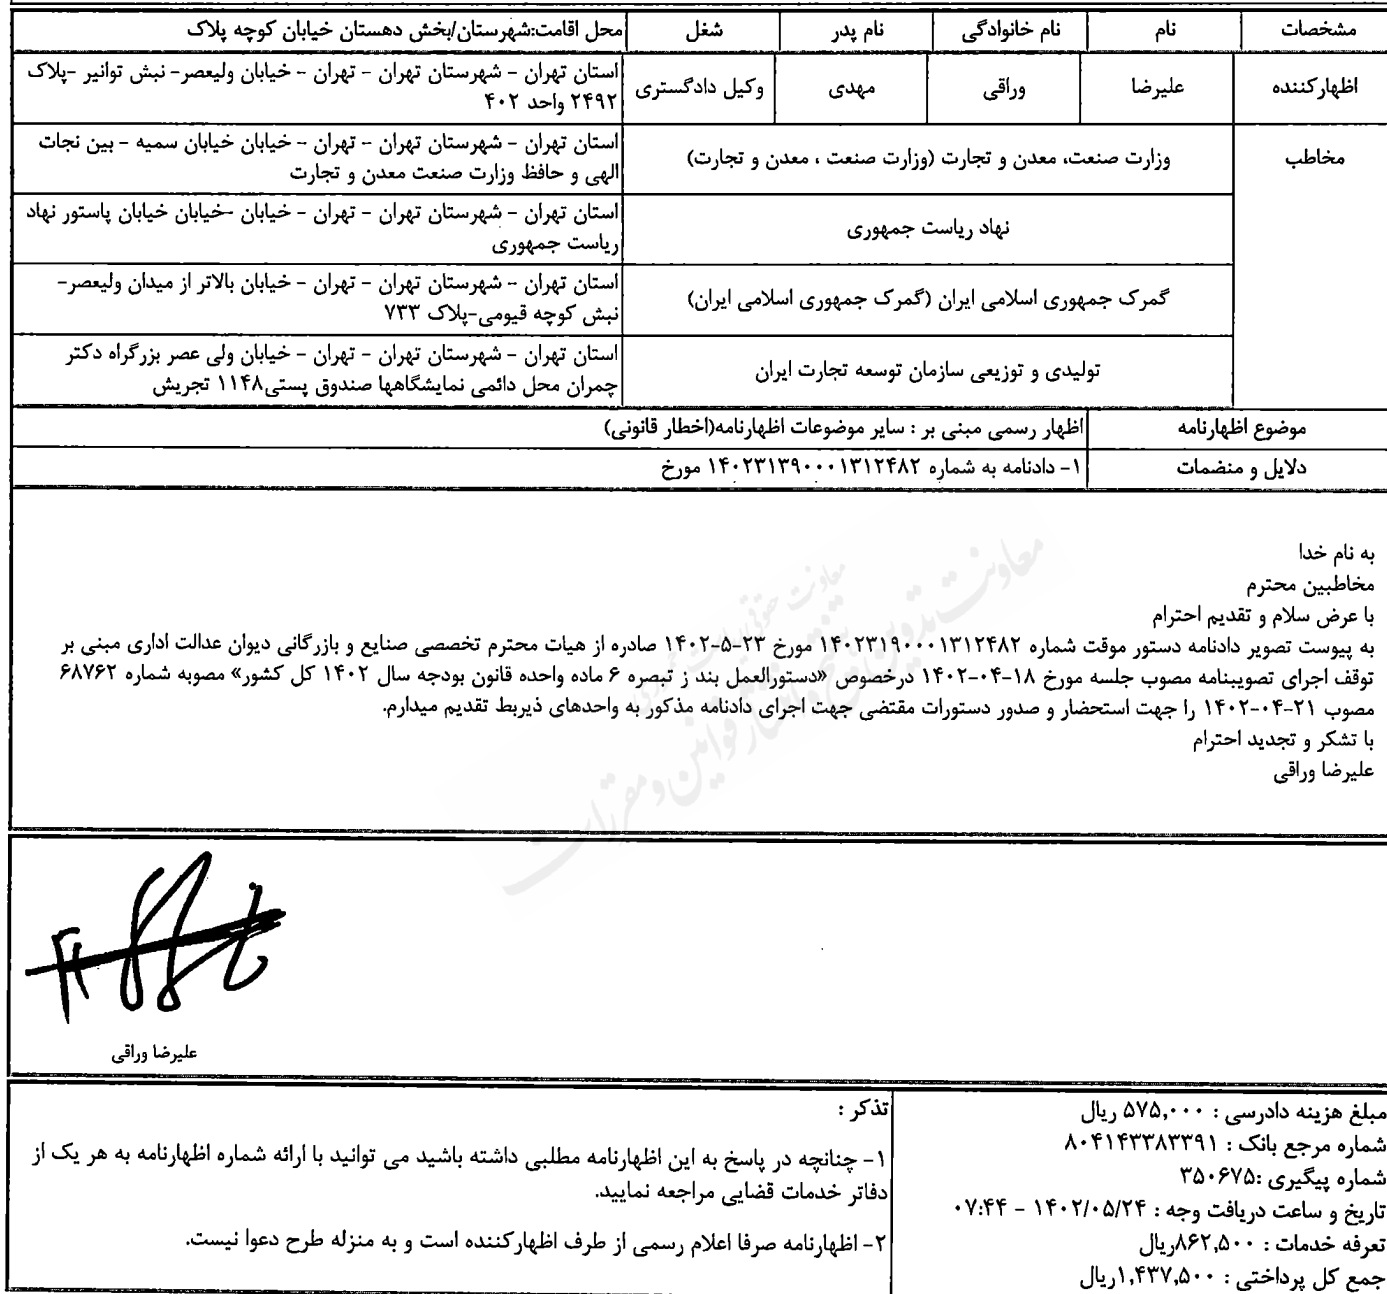 مشخصات نام نام خانوادگی نام پدر شغل محل اقامت:شهرستان/بخش دهستان خیابان کوچه پلاک
اظهارکننده علیرضا وراقی مهدی وکیل دادگستری استان تهران - شهرستان تهران - تهران - خیابان ولیعصر- نبش توانیر -پلاک
۲۴۹۲ واحد ۴۰۲
مخاطب وزارت صنعت، معدن و تجارت (وزارت صنعت ، معدن و تجارت) استان تهران - شهرستان تهران - تهران - خیابان خیابان سمیه - بین نجات
الهی و حافظ وزارت صنعت معدن و تجارت
نهاد ریاست جمهوری استان تهران - شهرستان تهران - تهران - خیابان -خیابان خیابان پاستور نهاد
ریاست جمهوری
گمرک جمهوری اسلامی ایران (گمرک جمهوری اسلامی ایران) استان تهران - شهرستان تهران - تهران - خیابان بالاتر از میدان ولیعصر-
نبش کوچه قیومی-پلاک ۷۳۳
تولیدی و توزیعی سازمان توسعه تجارت ایران استان تهران - شهرستان تهران - تهران - خیابان ولی عصر بزرگراه دکتر
چمران محل دائمی نمایشگاهها صندوق پستی۱۱۴۸ تجریش
موضوع اظهارنامه اظهار رسمی مبنی بر : سایر موضوعات اظهارنامه(اخطار قانونی)
دلایل و منضمات ۱- دادنامه به شماره ۱۴۰۲۳۱۳۹۰۰۰۱۳۱۲۴۸۲ مورخ
به نام خدا
مخاطبین محترم
با عرض سلام و تقدیم احترام
به پیوست تصویر دادنامه دستور موقت شماره ۱۴۰۲۳۱۹۰۰۰۱۳۱۲۴۸۲ مورخ ۲۳-۵-۱۴۰۲ صادره از هیات محترم تخصصی صنایع و بازرگانی دیوان عدالت اداری مبنی بر
توقف اجرای تصویبنامه مصوب جلسه مورخ ۱۸-۰۴-۱۴۰۲ درخصوص «دستورالعمل بند ز تبصره ۶ ماده واحده قانون بودجه سال ۱۴۰۲ کل کشور» مصوبه شماره ۶۸۷۶۲
مصوب ۲۱-۰۴-۱۴۰۲ را جهت استحضار و صدور دستورات مقتضی جهت اجرای دادنامه مذکور به واحدهای ذیربط تقدیم میدارم.
با تشکر و تجدید احترام
علیرضا وراقی
علیرضا وراقی
مبلغ هزینه دادرسی : ۵۷۵,۰۰۰ ریال
شماره مرجع بانک : ۸۰۴۱۴۳۳۸۳۳۹۱
شماره پیگیری :۳۵۰۶۷۵
تاریخ و ساعت دریافت وجه : ۱۴۰۲/۰۵/۲۴ - ۰۷:۴۴
تعرفه خدمات : ۸۶۲,۵۰۰ریال
جمع کل پرداختی : ۱,۴۳۷,۵۰۰ریال
تذکر :
۱- چنانچه در پاسخ به این اظهارنامه مطلبی داشته باشید می توانید با ارائه شماره اظهارنامه به هر یک از
دفاتر خدمات قضایی مراجعه نمایید.
۲- اظهارنامه صرفا اعلام رسمی از طرف اظهارکننده است و به منزله طرح دعوا نیست.